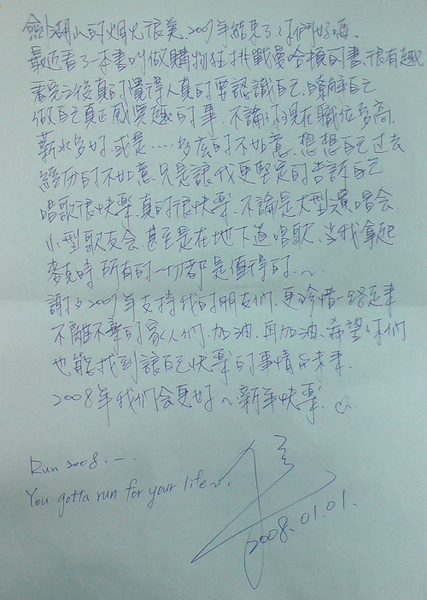 劍湖山的烟火很美、2007年結束了、你們好嗎、
最近看了一本書叫做購物狂挑戰曼哈頓的書、很有趣
看完之後真的覺得人真的要認識自己、瞭解自己
做自己真正感興趣的事、不論你現在職位多高、
薪水多好、或是……多底的不如意、想想自己过去
經历的不如意、只是讓我更堅定的告訴自己
唱歌很快樂、真的很快樂、不論是大型演唱会、
小型歌友会、甚至是在地下道唱歌、当我拿起
麥克時、所有的一切都是值得的、~
謝謝2007年支持我的朋友們、更珍惜一路走來
不離不棄的家人們、加油、再加油、希望你們
也能找到讓自己快樂的事情与未來、
2008年我們会更好~新年快樂、
Run 2008.一.
You gotta run for your life~.
2008.01.01.